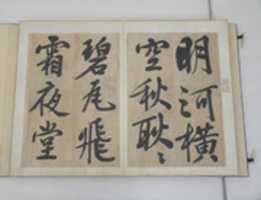 明河横
空秋耿〻
碧瓦飛
霜夜堂